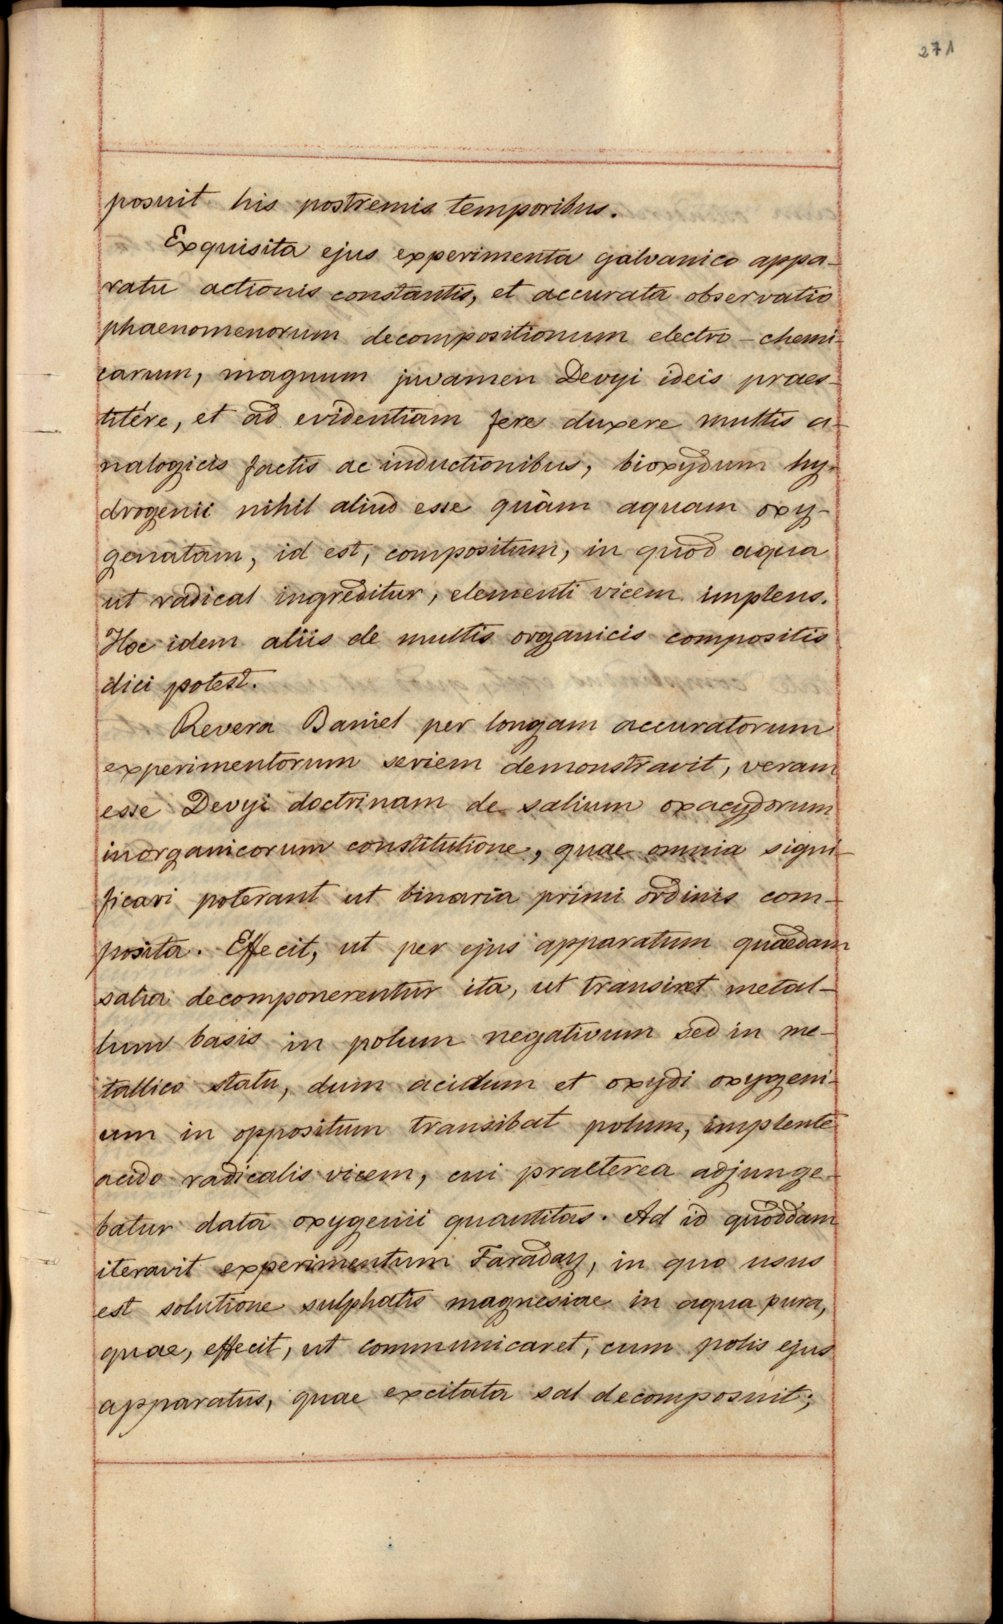 271
posuit his postremis temporibus.
Exquisita ejus experimenta galvanico appa-
ratu actionis constantis, et accurata observatio
phaenomenorum decompositionum electro-chemi-
carum, magnum juvamen Devyi ideis praes-
titére, et ad evidentiam fere duxere multis a-
nalogicis factis ac inductionibus, bioxydum hy-
drogenii nihil aliud esse quàm aquam oxy-
genatam, id est, compositum, in quod aqua
ut radical ingreditur, elementi vicem implens.
Hoc idem aliis de multis organicis compositis
dici potest.
Revera Daniel per longam accuratorum
experimentorum seriem demonstravit, veram
esse Devyi doctrinam de salium oxacydorum
inorganicorum constitutione, quae omnia signi-
ficari poterant ut binaria primi ordinis com-
posita. Effecit, ut per ejus apparatum quaedam
salia decomponerentur ita, ut transiret metal-
lum basis in polum negativum sed in me-
tallico statu, dum acidum et oxydi oxygeni-
um in oppositum transibat polum, implente
acido radicalis vicem, cui praeterea adjunge-
batur data oxygenii quantitas. Ad id quoddam
iteravit experimentum Faraday, in quo usus
est solutione sulphatis magnesiae in aqua pura,
quae, effecit, ut communicaret, cum polis ejus
apparatus, quae excitata sal decomposuit;